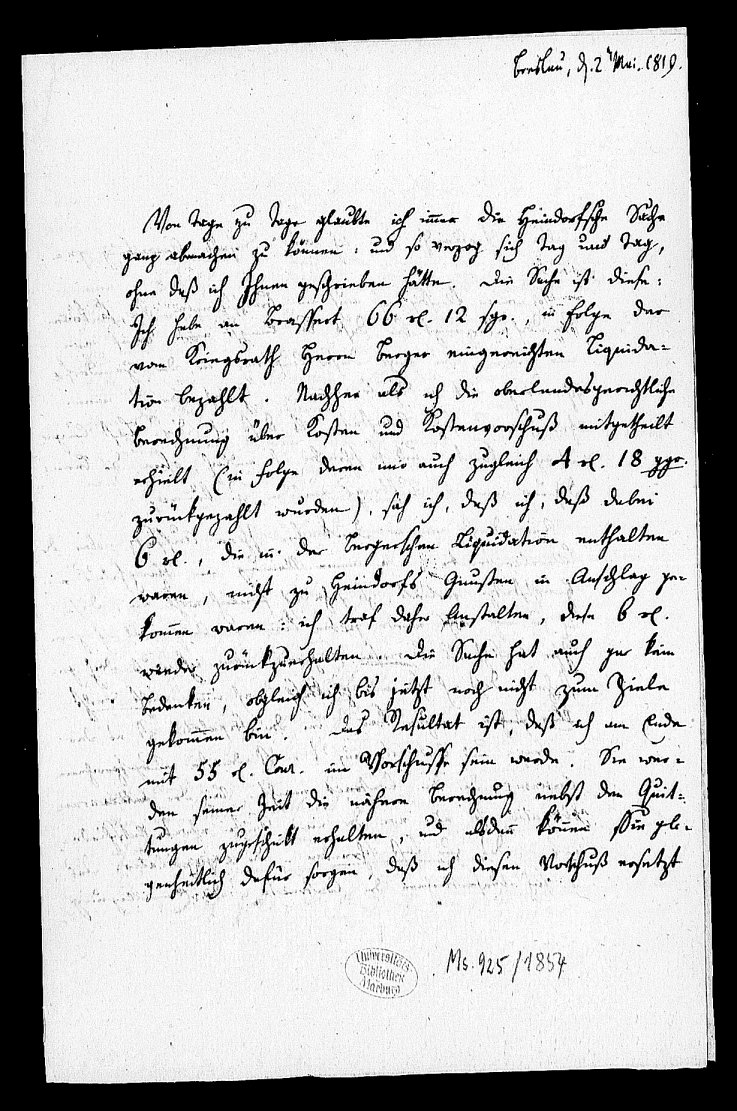 Breslau, d. 2t Mai. 1819.
Von Tage zu Tage glaubte ich immer die Heindorfsche Sache
ganz abmachen zu können: und so verzog sich Tag und Tag,
ohne daß ich Ihnen geschrieben hätte. Die Sache ist diese:
Ich habe an Brassert 66 rl. 12 sgr., in Folge der
vom Kriegsrath Herrn Berger eingereichten Liquida-
tion bezahlt. Nachher als ich die oberlandesgerichtliche
Berechnung über Kosten und Kostenvorschuß mitgetheilt
erhielt (in Folge deren mir auch zugleich 4 rl. 18 ggr.
zurückgezahlt wurden), sah ich, daß ich, daß dabei
6 rl., die in der Bergerschen Liquidation enthalten
waren, nicht zu Heindorfs Gunsten in Anschlag ge-
kommen waren: ich traf daher Anstalten, diese 6 rl.
wieder zurückzuerhalten. Die Sache hat auch gar kein
Bedenken, obgleich ich bis jetzt noch nicht zum Ziele
gekommen bin. Das Resultat ist, daß ich am Ende
mit 55 rl. Cour. im Vorschusse sein werde. Sie wer-
den seiner Zeit die nähere Berechnung nebst den Quit-
tungen zugeschickt erhalten, und alsdann können Sie gele-
gentlich dafür sorgen, daß ich diesen Vorschuß ersetzt
Universitäts-
Bibliothek
Marburg
Ms. 925/1854